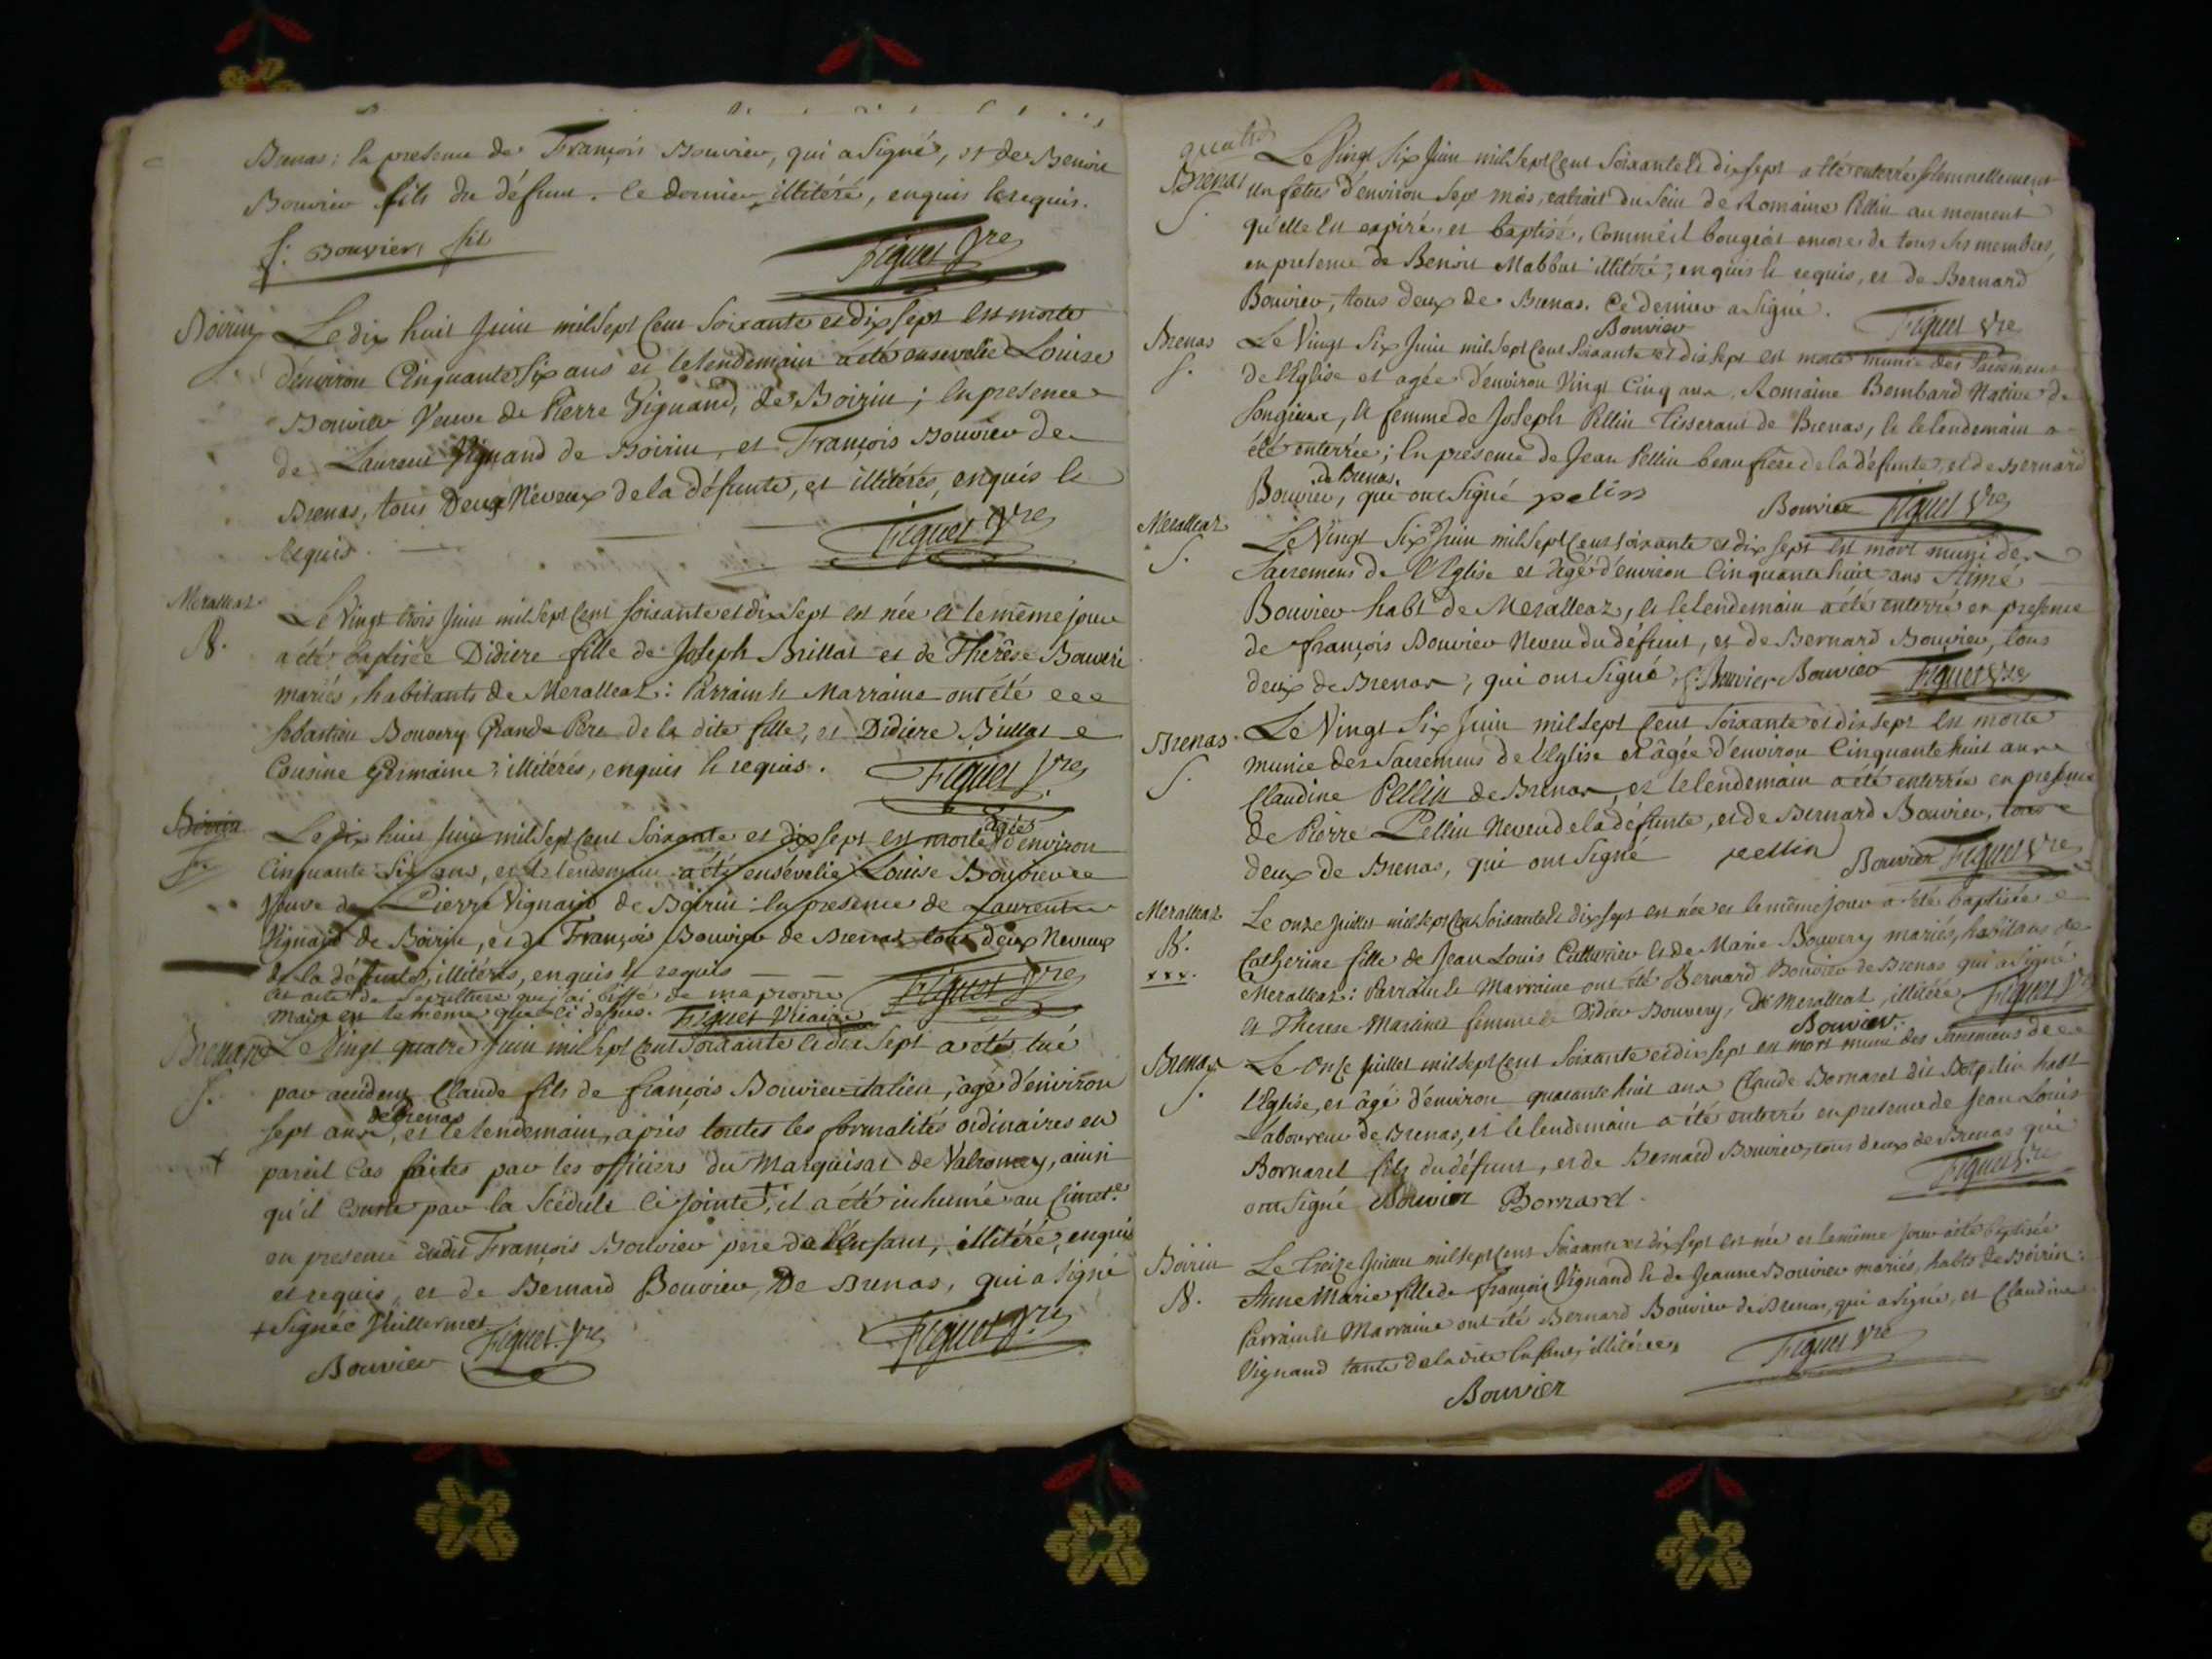 Brenas: la presence de François Bouvier, qui a signé, et de Benoit
Bouvier fils du défunt. le dernier illitéré, enquis & requis.
f: Bouvier fil Figuet Vre
Boirin Le dix huit Juin mil Sept Cent Soixante et dix sept est morte
S. d'environ Cinquante Six ans et le lendemain a été ensevelie Louise
Bouvier Veuve de Pierre Vignand, de Boirin; en presence
de Laurent Vignand de Boirin, et François Bouvier de
Brenas, tous Deux Neveux de la défunte, et illitérés, enquis &
Requis. Figuet Vre
Meralleaz Le Vingt trois Juin mil Sept Cent soixante et dix Sept est née et le même jour
N. a été baptisée Didiere fille de Joseph Brillat et de Therêse Bouveri
mariés, habitants de Meralleaz: Parrain & Marraine ont été
Sebastien Bouvery Grand Pere de la dite fille, et Didiere Brillat
Cousine Germaine, illitérés, enquis & requis. Figuet Vre
Boirin Le dix huit Juin mil Sept Cent Soixante et dix sept est morte agée d'environ
S. Cinquante Six ans, et le lendemain a été ensévelie Louise Bouvier
Veuve de Pierre Vignand de Boirin: en presence de Laurent
Vignand de Boirin, et de François Bouvier de Brenas tous deux Neveux
de la défunte, illitérés, enquis & requis Figuet Vre
Cet acte de Sepulture que j'ai biffé de ma propre
main est le même que ci dessus. Figuet Vicaire
Brenas Le Vingt quatre Juin mil Sept Cent Soixante et dix Sept a été tué
S. par accident Claude fils de françois Bouvier italien, âgé d'environ
sept ans de Brenas, et le lendemain, après toutes les formalités ordinaires en
pareil Cas faites par les officiers du Marquisat de Valromey, ainsi
qu'il conste par la Scédule ci jointe +, il a été inhumé au Cimet.e
en presence dudit François Bouvier pere de l'enfant, illitéré, enquis
et requis, et de Bernard Bouvier, De Brenas, qui a signé
+ Signée Vuillermet
Bouvier Figuet Vre Figuet Vre
quatre
Brenas Le Vingt Six Juin mil Sept Cent Soixante & dix sept a été enterré solemnellement
S. un fœtus d'environ Sept mois, extrait du Sein de Romaine Pellin au moment
qu'elle est expiré, et baptisé, Comme il bougeoit encore de tous ses membres,
en presence de Benoit Mabbut illitéré, enquis & requis, et de Bernard
Bouvier, tous deux de Brenas. Ce dernier a signé.
Bouvier Figuet Vre
Brenas Le Vingt Six Juin mil Sept Cent Soixante et dix Sept est morte munie des Sacremens
S. de l'Eglise et agée d'environ Vingt Cinq ans, Romaine Bombard Native de
Songieux, & femme de Joseph Pellin Tisserant de Brenas, & le lendemain a
été enterrée; En presence de Jean Pellin beau frère de la défunte, et de Bernard
Bouvier, de Brenas, qui ont Signé pelin Bouvier Figuet Vre
Meralleaz Le Vingt Six Juin mil Sept Cent soixante et dix sept est mort muni des
S. Sacremens de l'Eglise et agé d'environ Cinquante huit ans Aimé
Bouvier habt de Meralleaz, & le lendemain a été enterré en presence
de françois Bouvier Neveu du défunt, et de Bernard Bouvier, tous
deux de Brenas, qui ont Signé f: Bouvier Bouvier Figuet Vre
Brenas Le Vingt Six Juin mil Sept Cent Soixante et dix sept est morte
S. munie des Sacremens de l'Eglise et âgée d'environ Cinquante huit ans
Claudine Pellin de Brenas, et le lendemain a été enterrée en presence
de Pierre Pellin Neveu de la défunte, et de Bernard Bouvier, tous
deux de Brenas, qui ont Signé pellin Bouvier Figuet Vre
Meralleaz Le onze Juillet mil Sept Cent Soixante & dix sept est née et le même jour a été baptisée
N. Catherine fille de Jean Louis et de Marie Bouvery mariés, habitans de
xxx. Meralleaz: Parrain & Marraine ont été Bernard Bouvier de Brenas qui a signé
et Therese Martinet femme de Didier Bouvery, de Meralleaz, illitérée Figuet Vre
Bouvier
Brenas Le Onze Juillet mil Sept Cent Soixante et dix Sept est mort muni des Sacremens de
S. l'Eglise, et âgé d'environ quarante huit ans Claude Bornarel dit habt
Laboureur de Brenas, et le lendemain a été enterré en presence de Jean Louis
Bornarel fils du défunt, et de Bernard Bouvier, tous deux de Brenas qui
ont Signé Bouvier Bornarel Figuet Vre
Boirin Le treize Juillet mil Sept Cent Soixante et dix Sept est née et le même jour a été baptisée
N. Anne Marie fille de françois Vignand & de Jeanne Bouvier mariés, habts de Boirin:
Parrain & Marraine ont été Bernard Bouvier de Brenas, qui a Signé, et Claudine
Vignand tante de la dite Enfant, illitérée.
Bouvier Figuet Vre